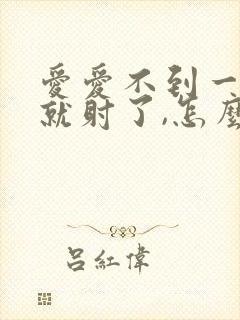 愛愛不到一
就射了,怎麼
呂紅偉